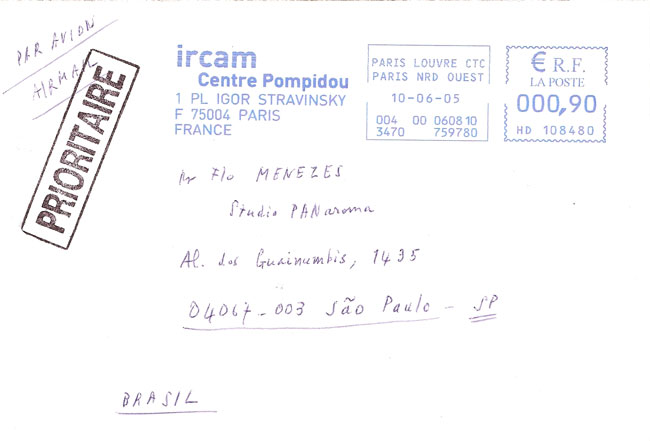 PAR AVION
AIRMAIL
PRIORITAIRE
ircam
Centre Pompidou
1 PL IGOR STRAVINSKY
F 75004 PARIS
FRANCE
PARIS LOUVRE CTC
PARIS NRD OUEST
10-06-05
004 00 060810
3470 759780
€ R.F.
LA POSTE
000,90
HD 108480
Mr Flo MENEZES
Studio PANaroma
Al. dos Guainumbis, 1435
04067-003 São Paulo - SP
BRASIL